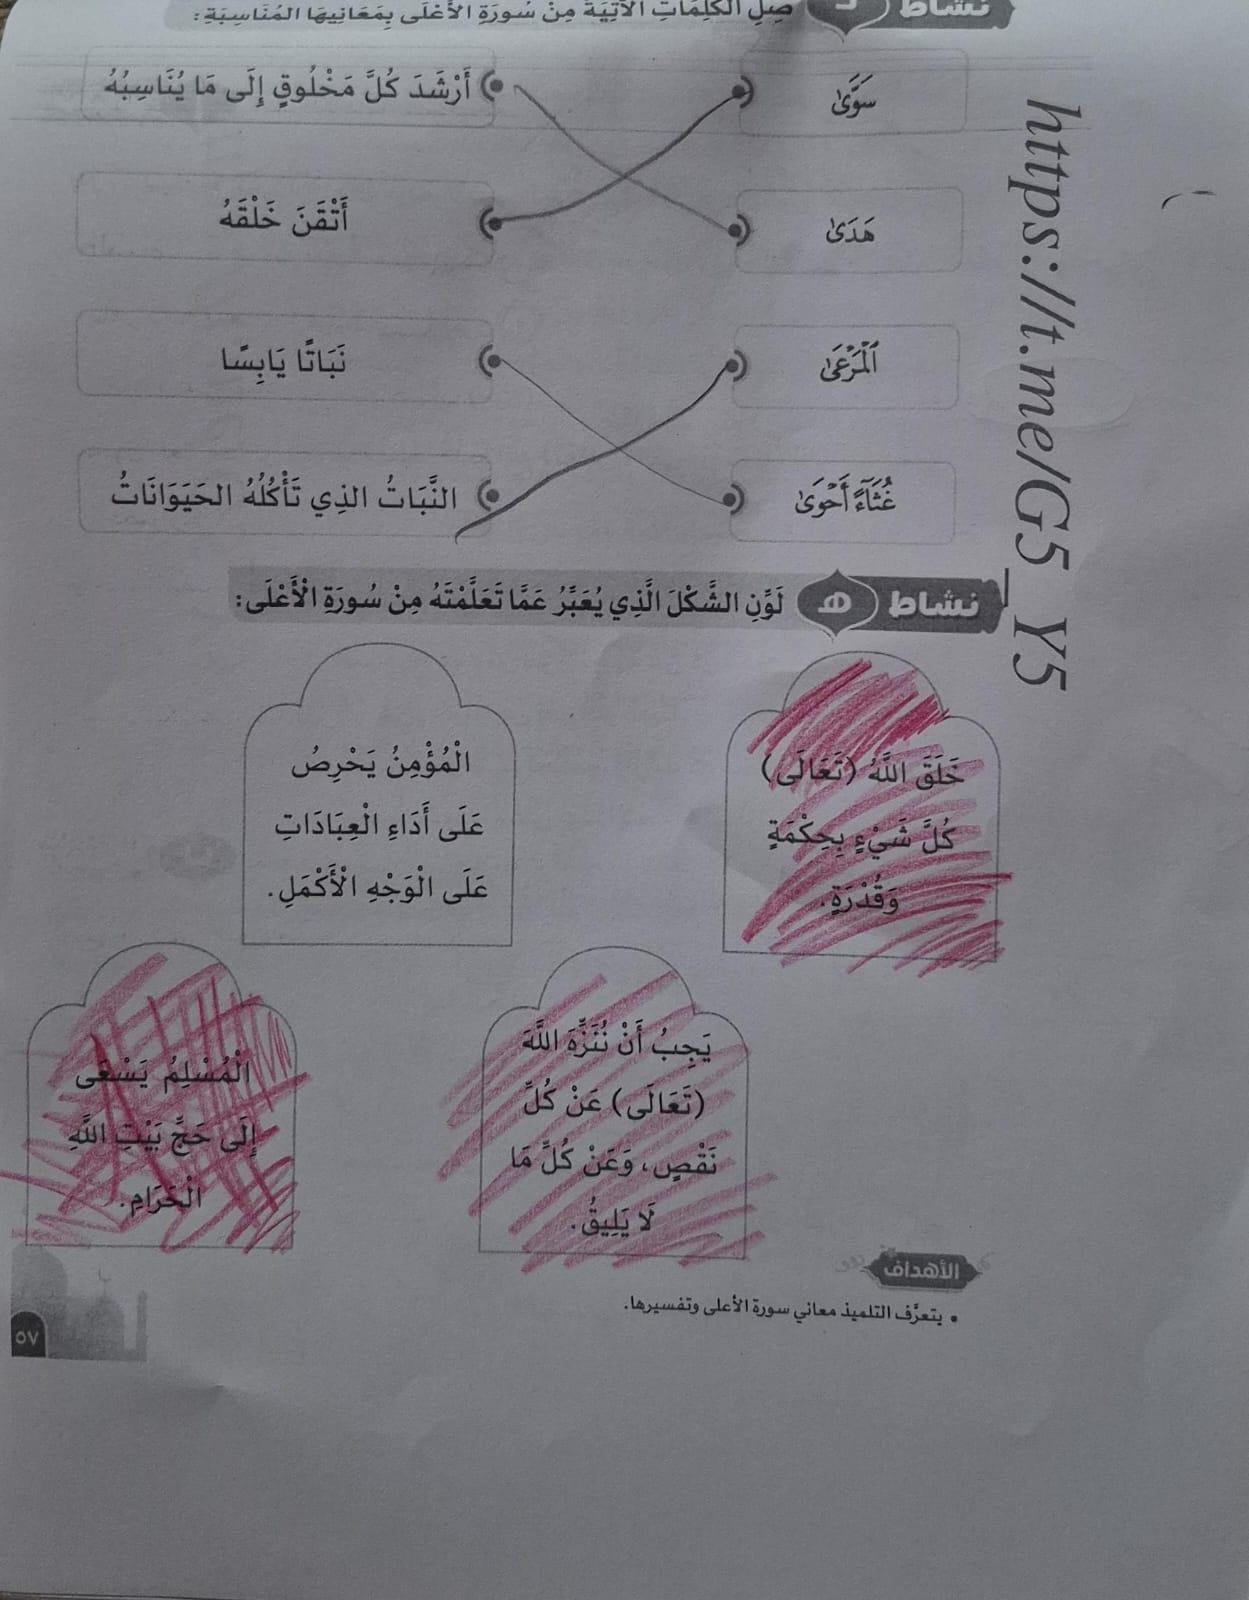 نشاط د صِلِ الْكَلِمَاتِ الْآتِيَةَ مِنْ سُورَةِ الْأَعْلَى بِمَعَانِيهَا الْمُنَاسِبَةِ:
سَوَّىٰ
أَرْشَدَ كُلَّ مَخْلُوقٍ إِلَى مَا يُنَاسِبُهُ
هَدَىٰ
أَتْقَنَ خَلْقَهُ
ٱلْمَرْعَىٰ
نَبَاتًا يَابِسًا
غُثَآءً أَحْوَىٰ
النَّبَاتُ الذِي تَأْكُلُهُ الحَيَوَانَاتُ
https://t.me/G5_Y5
نشاط هـ لَوِّنِ الشَّكْلَ الَّذِي يُعَبِّرُ عَمَّا تَعَلَّمْتَهُ مِنْ سُورَةِ الْأَعْلَى:
خَلَقَ اللَّهُ (تَعَالَى)
كُلَّ شَيْءٍ بِحِكْمَةٍ
وَقُدْرَةٍ.
الْمُؤْمِنُ يَحْرِصُ
عَلَى أَدَاءِ الْعِبَادَاتِ
عَلَى الْوَجْهِ الْأَكْمَلِ.
يَجِبُ أَنْ نُنَزِّهَ اللَّهَ
(تَعَالَى) عَنْ كُلِّ
نَقْصٍ، وَعَنْ كُلِّ مَا
لَا يَلِيقُ.
الْمُسْلِمُ يَسْعَى
إِلَى حَجِّ بَيْتِ اللَّهِ
الْحَرَامِ.
الأهداف
• يتعرَّف التلميذ معاني سورة الأعلى وتفسيرها.
٥٧